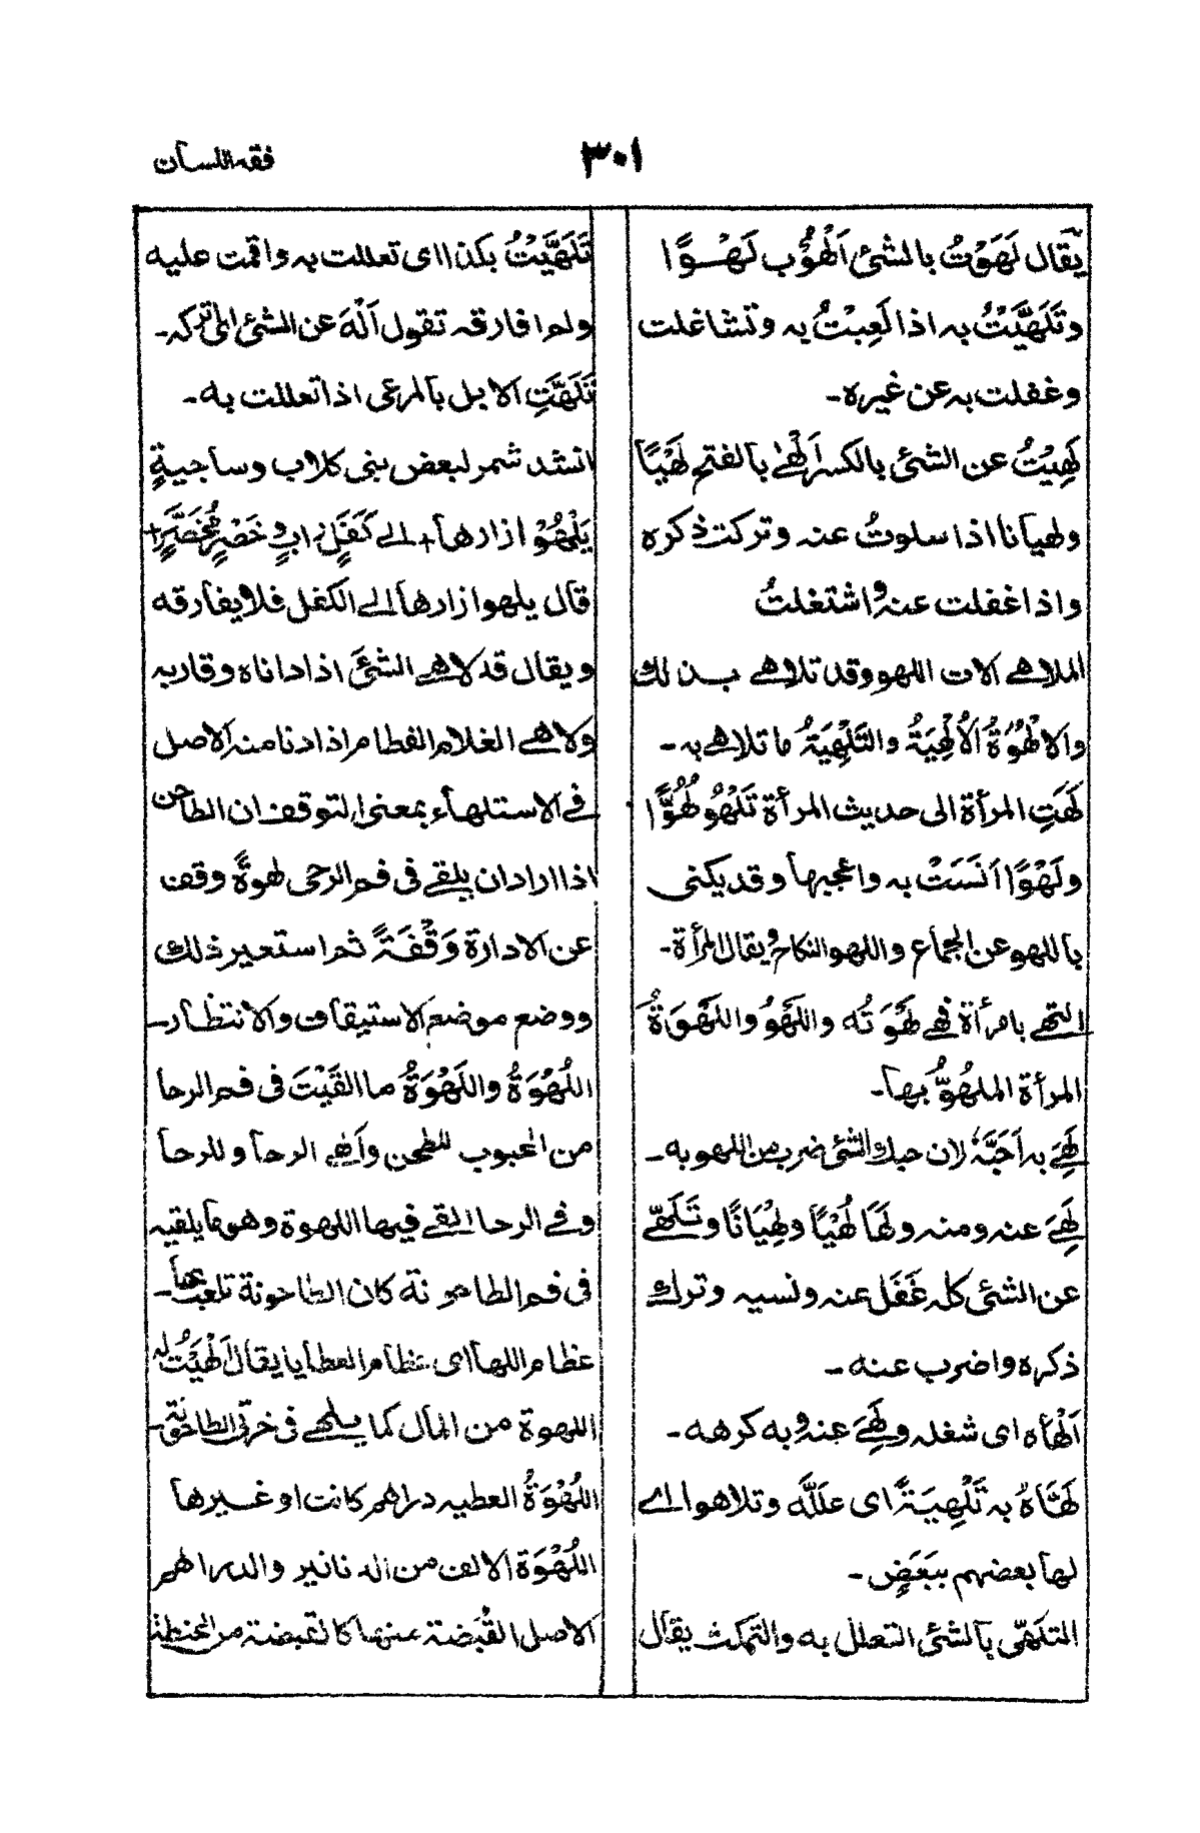 فقه اللسان
٣٠١
يقال لَهَوْتُ بالشئ اَلْهُوْ بہ لَهْوًا
وتَلَهَّيْتُ به اذا لَعِبْتُ به وتشاغلت
وغفلت به عن غيره۔
لَهِيْتُ عن الشئ بالكسر اَلْهٰى بالفتح لَهْيًا
ولهيانا اذا سلوتُ عنه وتركت ذكره
واذا غفلت عنه واشتغلتُ
الملاهے آلات اللهو وقد تلاهے بذلك
والاُلْهُوَّةُ اَلْاُلْهِيَةُ والتَّلْهِيَةُ ما تلاهے به۔
لَهَتِ المرأة الى حديث المرأة تَلْهُوْ لُهُوًّا
ولَهْوًا اَنَسَتْ به واعجبها وقد يكنى
باللهو عن الجماع واللهو النكاح ويقال المرأة۔
التهے بامرأة فهے لَهْوَتُه واللَهْوُ واللَهْوَةُ
المرأة الملهُوُّ بها۔
لَهِىَ به اَحَبَّهٗ لان حبك الشئ ضرب من اللهو به۔
لَهِىَ عنه ومنه ولَهَا لُهْيًا ولِهْيَانًا وتَلَهّٰے
عن الشئ كله غَفَل عنه ونسيه وترك
ذكره واضرب عنه۔
اَلْهَاه اى شغله ولَهِىَ عنه وبه كرهه۔
لَهَّاهُ به تَلْهِيَةً اى علَلَّه وتلاهوا اے
لها بعضهم ببَعَضٍ۔
التلَهّى بالشئ التعلل به والتمكث يقال
تَلَهَّيْتُ بكذا اى تعللت به واقمت عليه
ولم افارقه تقول اَلْهَ عن الشئ اى اتركه۔
تَلَهَّتِ الابل بالمرعى اذا تعللت به۔
انشد شمر لبعض بنى كلاب وساجيةٍ
يَلْهُوْ ازارها + الے كَفَلٍ رابٍ وخَصْرٍ مُخَصَّرٍ +
قال يلهو ازارها الے الكفل فلا يفارقه
ويقال قد لاهے الشئَ اذا داناه وقاربه
ولاهے الغلام الفطام اذا دنا منه الاصل
فے الاستلهاء بمعنى التوقف ان الطاحن
اذا اراد ان يلقے فى فم الرحى لهوةً وقف
عن الادارة وَقْفَةً ثم استعير ذلك
ووضع موضع الاستيقاف والانتظار۔
اللُهْوَةُ واللَهْوَةُ ما القَيْتَ فى فم الرحا
من الحبوب للطحن وأَلهے الرحا وللرحا
وفے الرحا القے فيها اللهوة وهو ما يلقيه
فى فم الطاحونة كان الطاحونة تلعب بها۔
عظام اللها اى عظام العطايا يقال اَلْهَيْتُ له
اللهوة من المال كما يلهے فى خرتى الطاحونة۔
اللُهْوَةُ العطيه دراهم كانت او غيرها
اللُهْوَة الالف من الدنانير والدراهم
الاصل القُبْضة منها كالقبضة من الحنطة